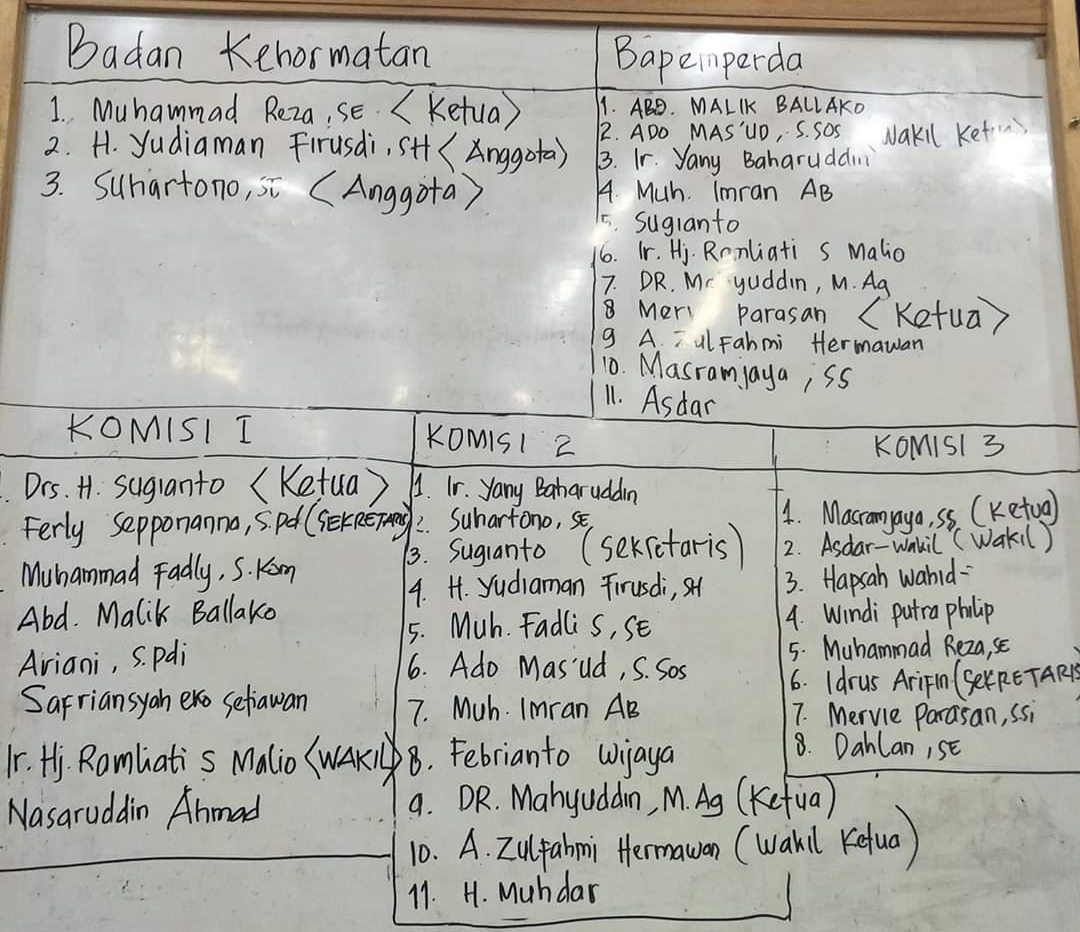 Badan Kehormatan
1. Muhammad Reza, SE <Ketua>
2. H. Yudiaman Firusdi, SH <Anggota>
3. Suhartono, ST <Anggota>
Bapemperda
1. ABD. MALIK BALLAKO
2. ADO MAS'UD, S.SOS Wakil Ketua>
3. Ir. Yany Baharuddin
4. Muh. Imran AB
5. Sugianto
6. Ir. Hj. Ramliati S Malio
7. DR. Mahyuddin, M.Ag
8 Mervie parasan <Ketua>
9 A. Zulfahmi Hermawan
10. Masramjaya, SS
11. Asdar
KOMISI I
. Drs. H. Sugianto <Ketua>
Ferly Sepponanna, S.pd (SEKRETARIS)
Muhammad Fadly, S.Kom
Abd. Malik Ballako
Ariani, S.pdi
Safriansyah eko setiawan
Ir. Hj. Ramliati S Malio <WAKIL>
Nasaruddin Ahmad
KOMISI 2
1. Ir. Yany Baharuddin
2. Suhartono, SE
3. Sugianto (Sekretaris)
4. H. Yudiaman Firusdi, SH
5. Muh. Fadli S, SE
6. Ado Mas'ud, S.Sos
7. Muh. Imran AB
8. Febrianto wijaya
9. DR. Mahyuddin, M.Ag (Ketua)
10. A. Zulfahmi Hermawan (Wakil Ketua)
11. H. Muhdar
KOMISI 3
1. Masramjaya, SS (Ketua)
2. Asdar-Wakil (Wakil)
3. Hapsah Wahid-
4. Windi putra philip
5. Muhammad Reza, SE
6. Idrus Arifin (SEKRETARIS
7. Mervie Parasan, SSi
8. Dahlan, SE